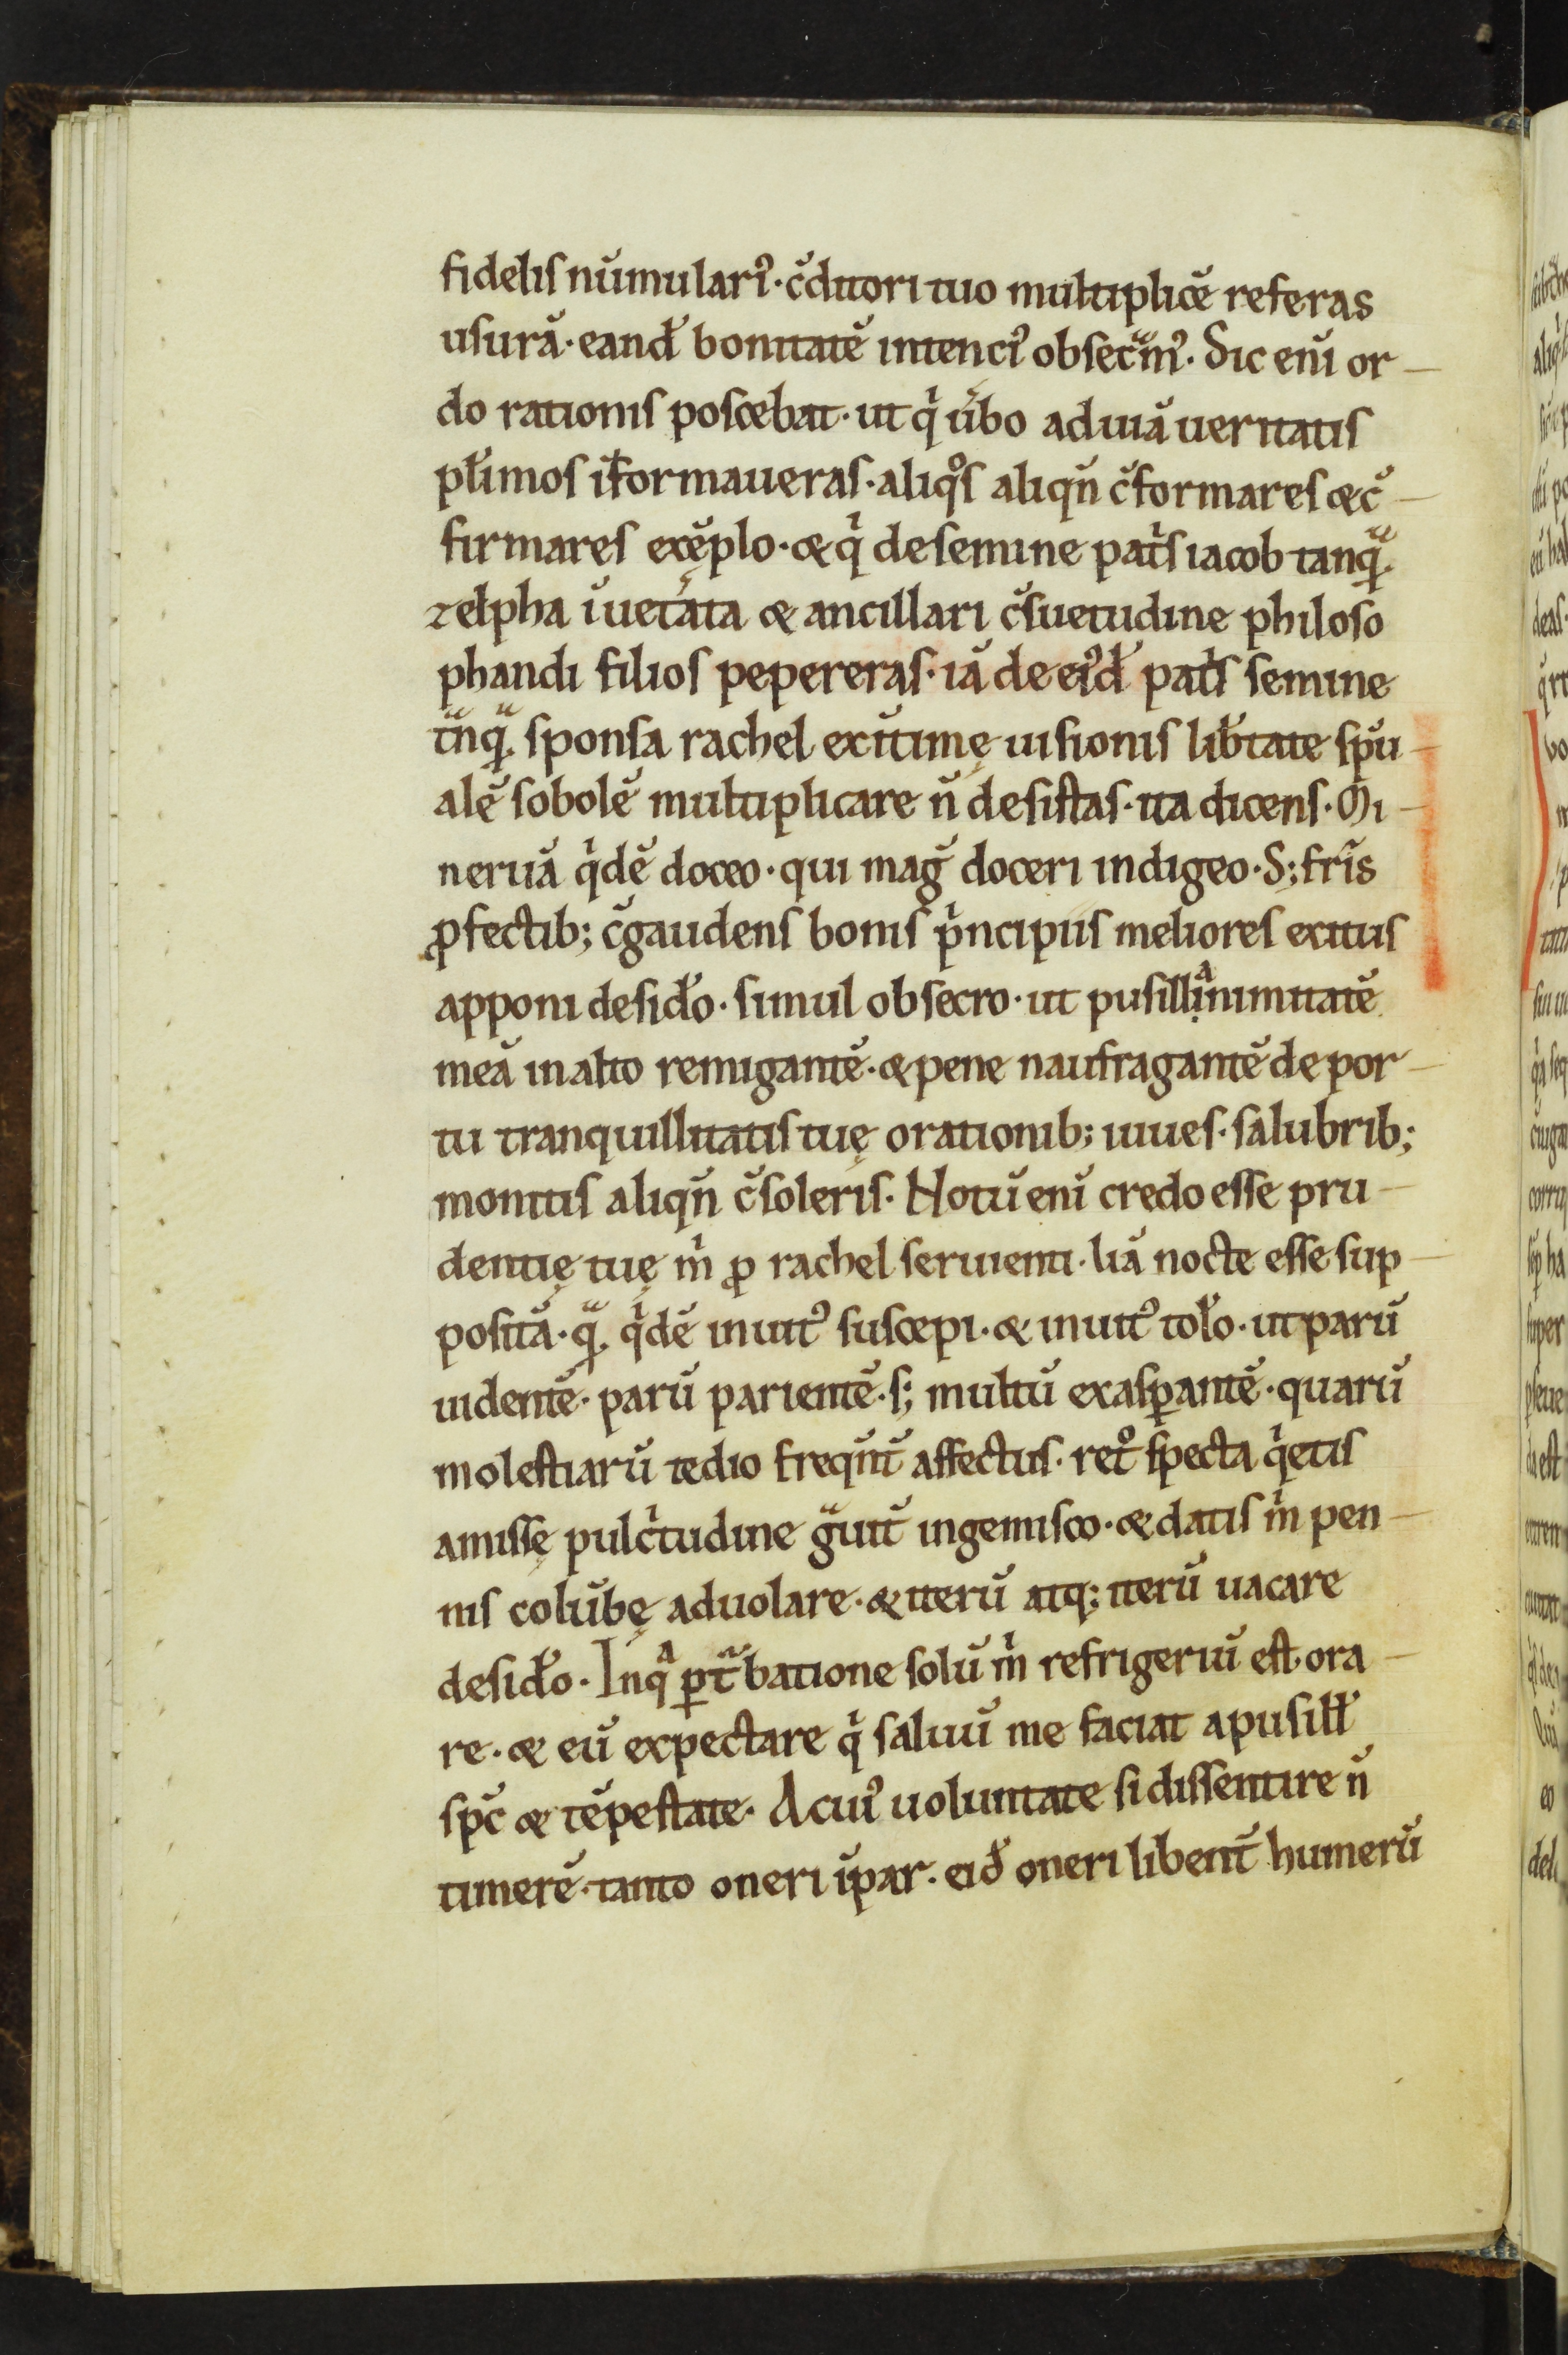 fidelis nūmulariꝰ· c̄ditori tuo multiplicē referas
usurā· eand̄ bonitatē intenciꝰ obsecᷓmꝰ· Sic enī or-
do rationis poscebat· ut qͥ ūbo ad uiā ueritatis
pl̄imos īformaueras· aliqͦs aliqn̄ c̄formares &c̄-
firmares exēplo· & qͥ de semine patͥs iacob tanqᷓ·
zelpha īuetᷓata & ancillari c̄suetudine philoso
phandi filios pepereras· iā de eiꝰd̄ patͥs semine
tᷓnqᷓ· sponsa rachel ex ītimę uisionis lib̄tate spū-
alē sobolē multiplicare n̄ desistas· ita dicens· Mi-
neruā qͥdē doceo· qui maḡ doceri indigeo· S; fr̄is
ꝓfectib; c̄gaudens bonis pͥncipiis meliores exitus
apponi desid̄o· simul obsecro· ut pusillᷓinimitatē
meā in alto remigantē· & pene naufragantē de por-
tu tranquillitatis tuę orationib; iuues· salubrib;
monitis aliqn̄ c̄soleris· Notū enī credo esse pru-
dentię tuę mͥ ꝓ rachel seruienti· liā nocte esse sup-
positā· qᷓ· qͥdē inuitꝰ suscepi· & inuitꝰ tol̄o· ut parū
uidentē· parū parientē· s; multū exasꝑantē· quarū
molestiarū tedio freqn̄t̄ affectus· retͦ specta qͥetis
amissę pulcͥtudine gᷓuit̄ ingemisco· & datis mͥ pen-
nis colūbę aduolare· & iterū atq; iterū uacare
desid̄o· In qᷓ ꝑtᷓbatione solū mͥ refrigeriū est ora-
re· & eū expectare qͥ saluū me faciat a pusill̄
spc̄ & tēpestate· A cuiꝰ uoluntate si dissentire n̄
timerē· tanto oneri īpar· eid̄ oneri libent̄ humerū